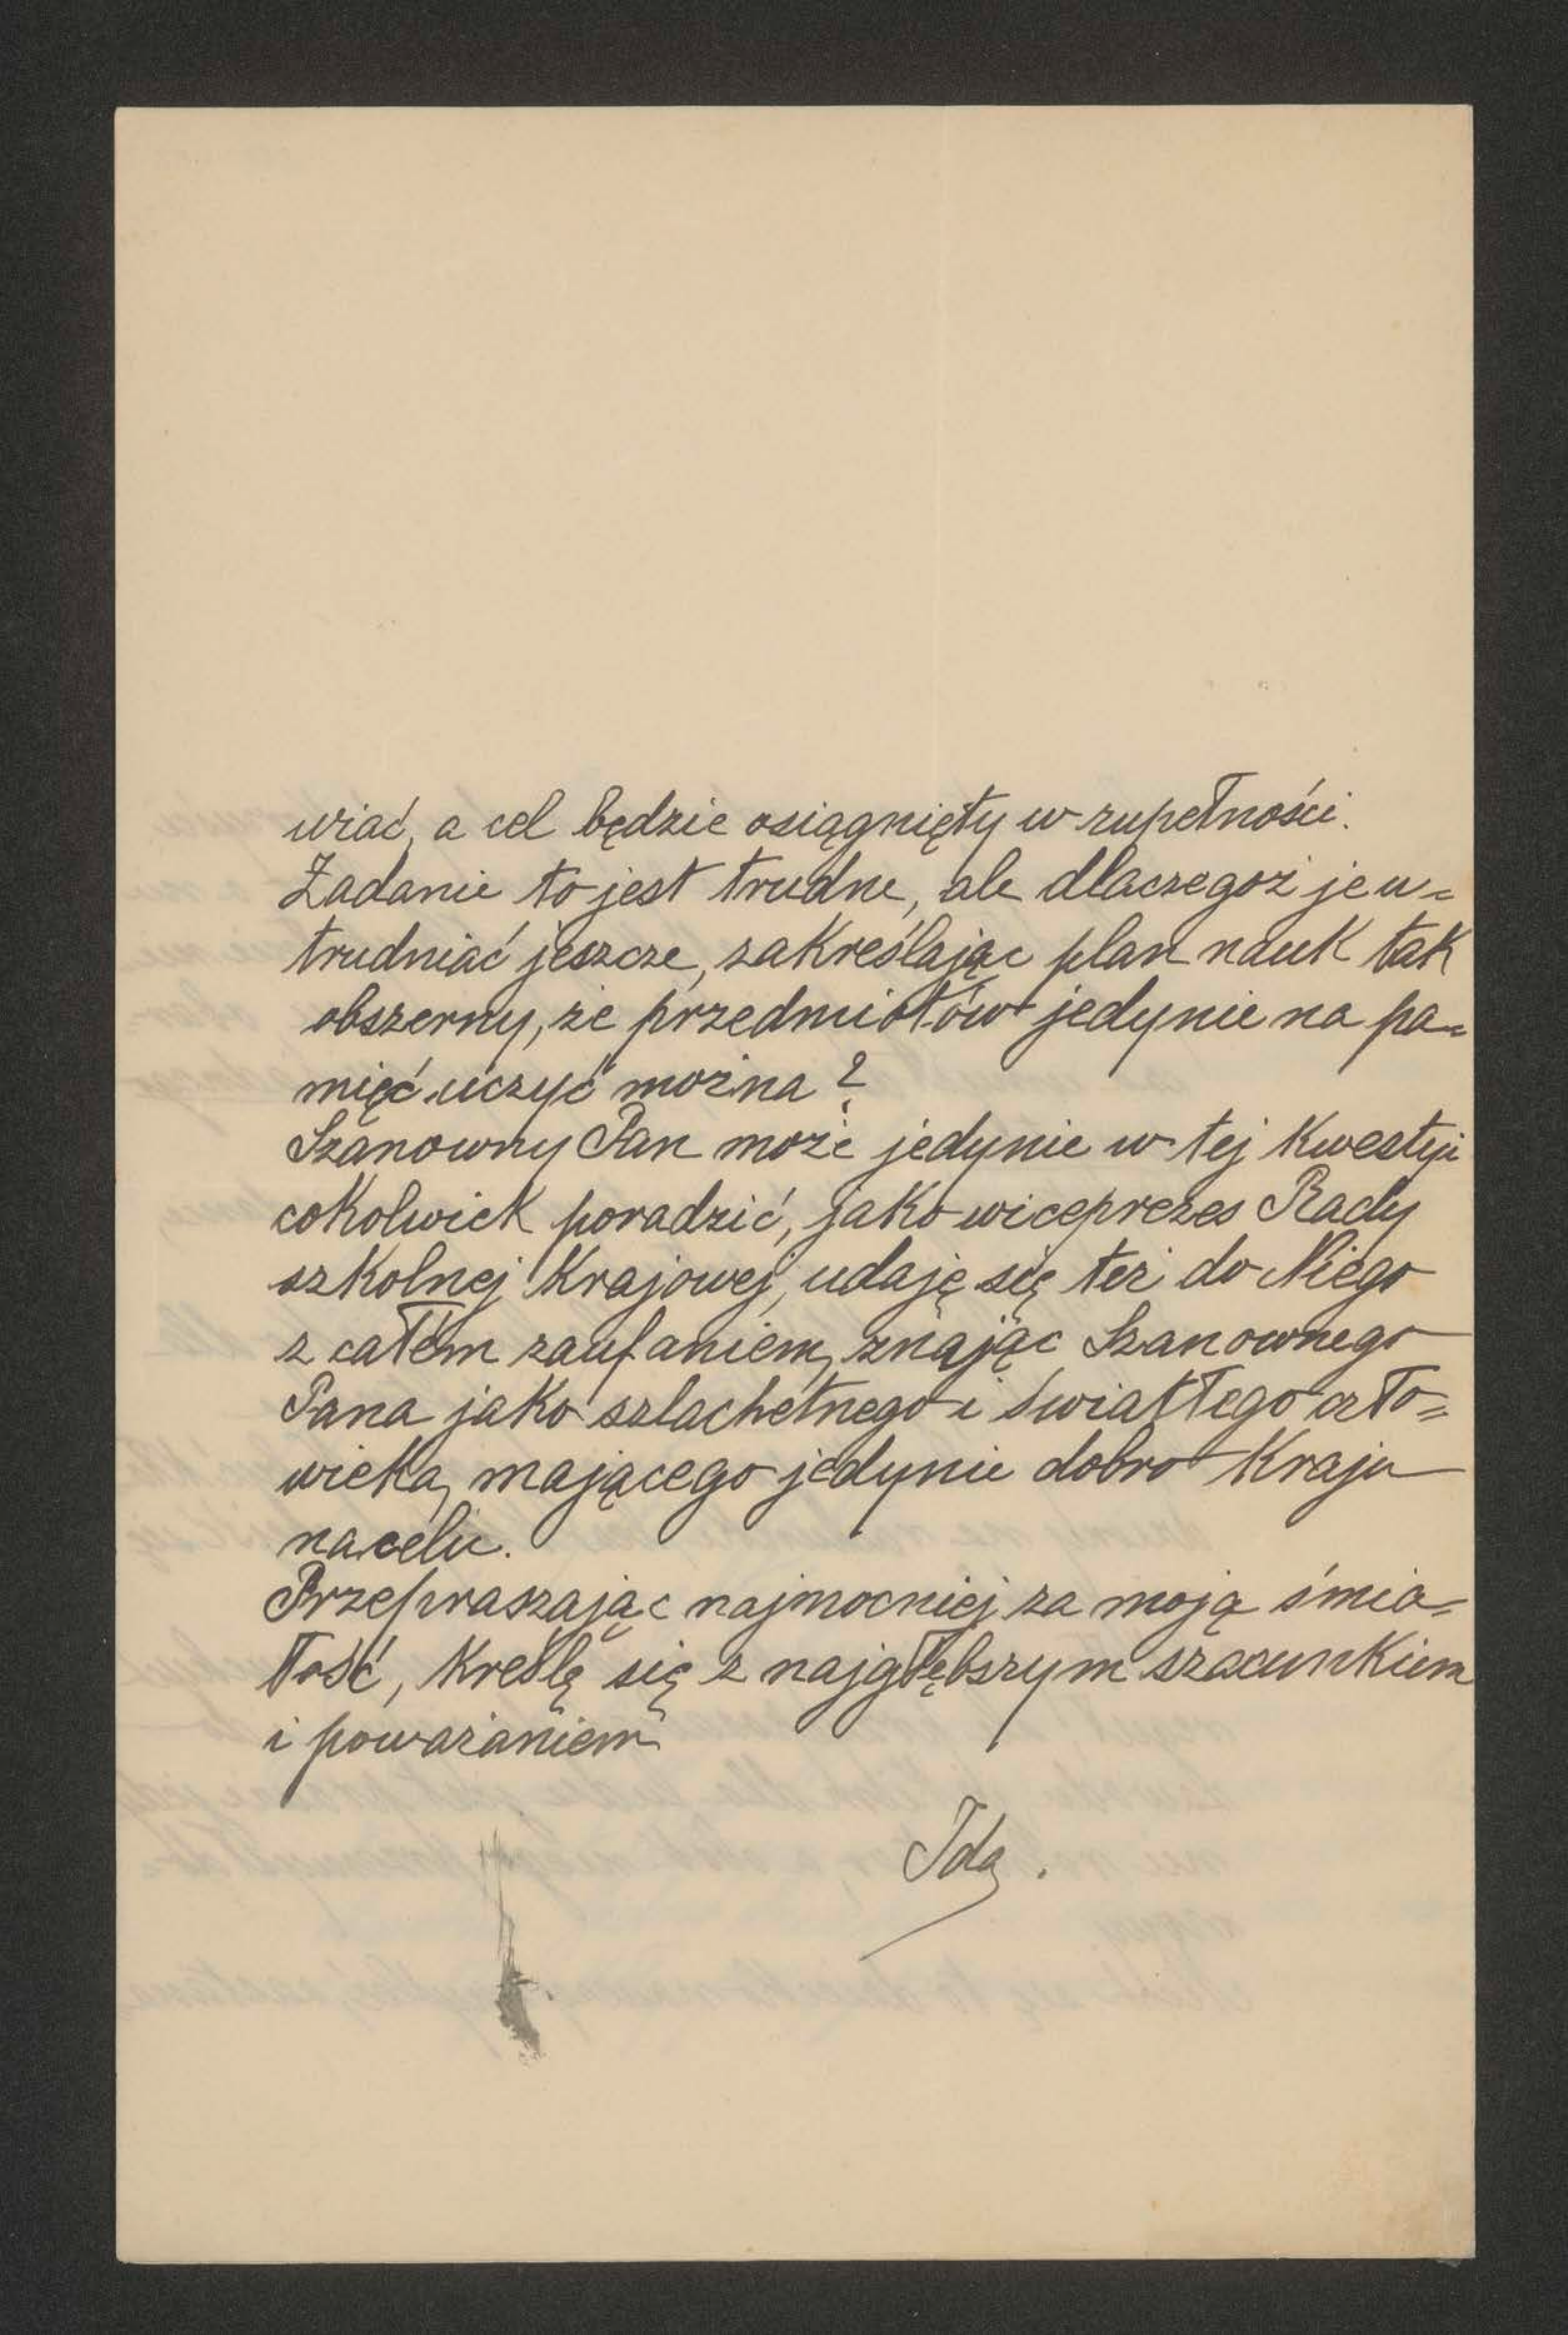 wiać, a cel będzie osiągnięty w zupełności.
Zadanie to jest trudne, ale dlaczegoż je u=
trudniać jeszcze, zakreślając plan nauk tak
obszerny, że przedmiotów jedynie na pa=
mięć uczyć można?
Szanowny Pan może jedynie w tej kwestyi
cokolwiek poradzić, jako wiceprezes Rady
szkolnej Krajowej, udaję się też do Niego
z całem zaufaniem, znając Szanownego
Pana jako szlachetnego i światłego czło=
wieka, mającego jedynie dobro Kraju
na celu.
Przepraszając najmocniej za moją śmia=
łość, kreślę się z najgłębszym szacunkiem
i poważaniem
Ida.